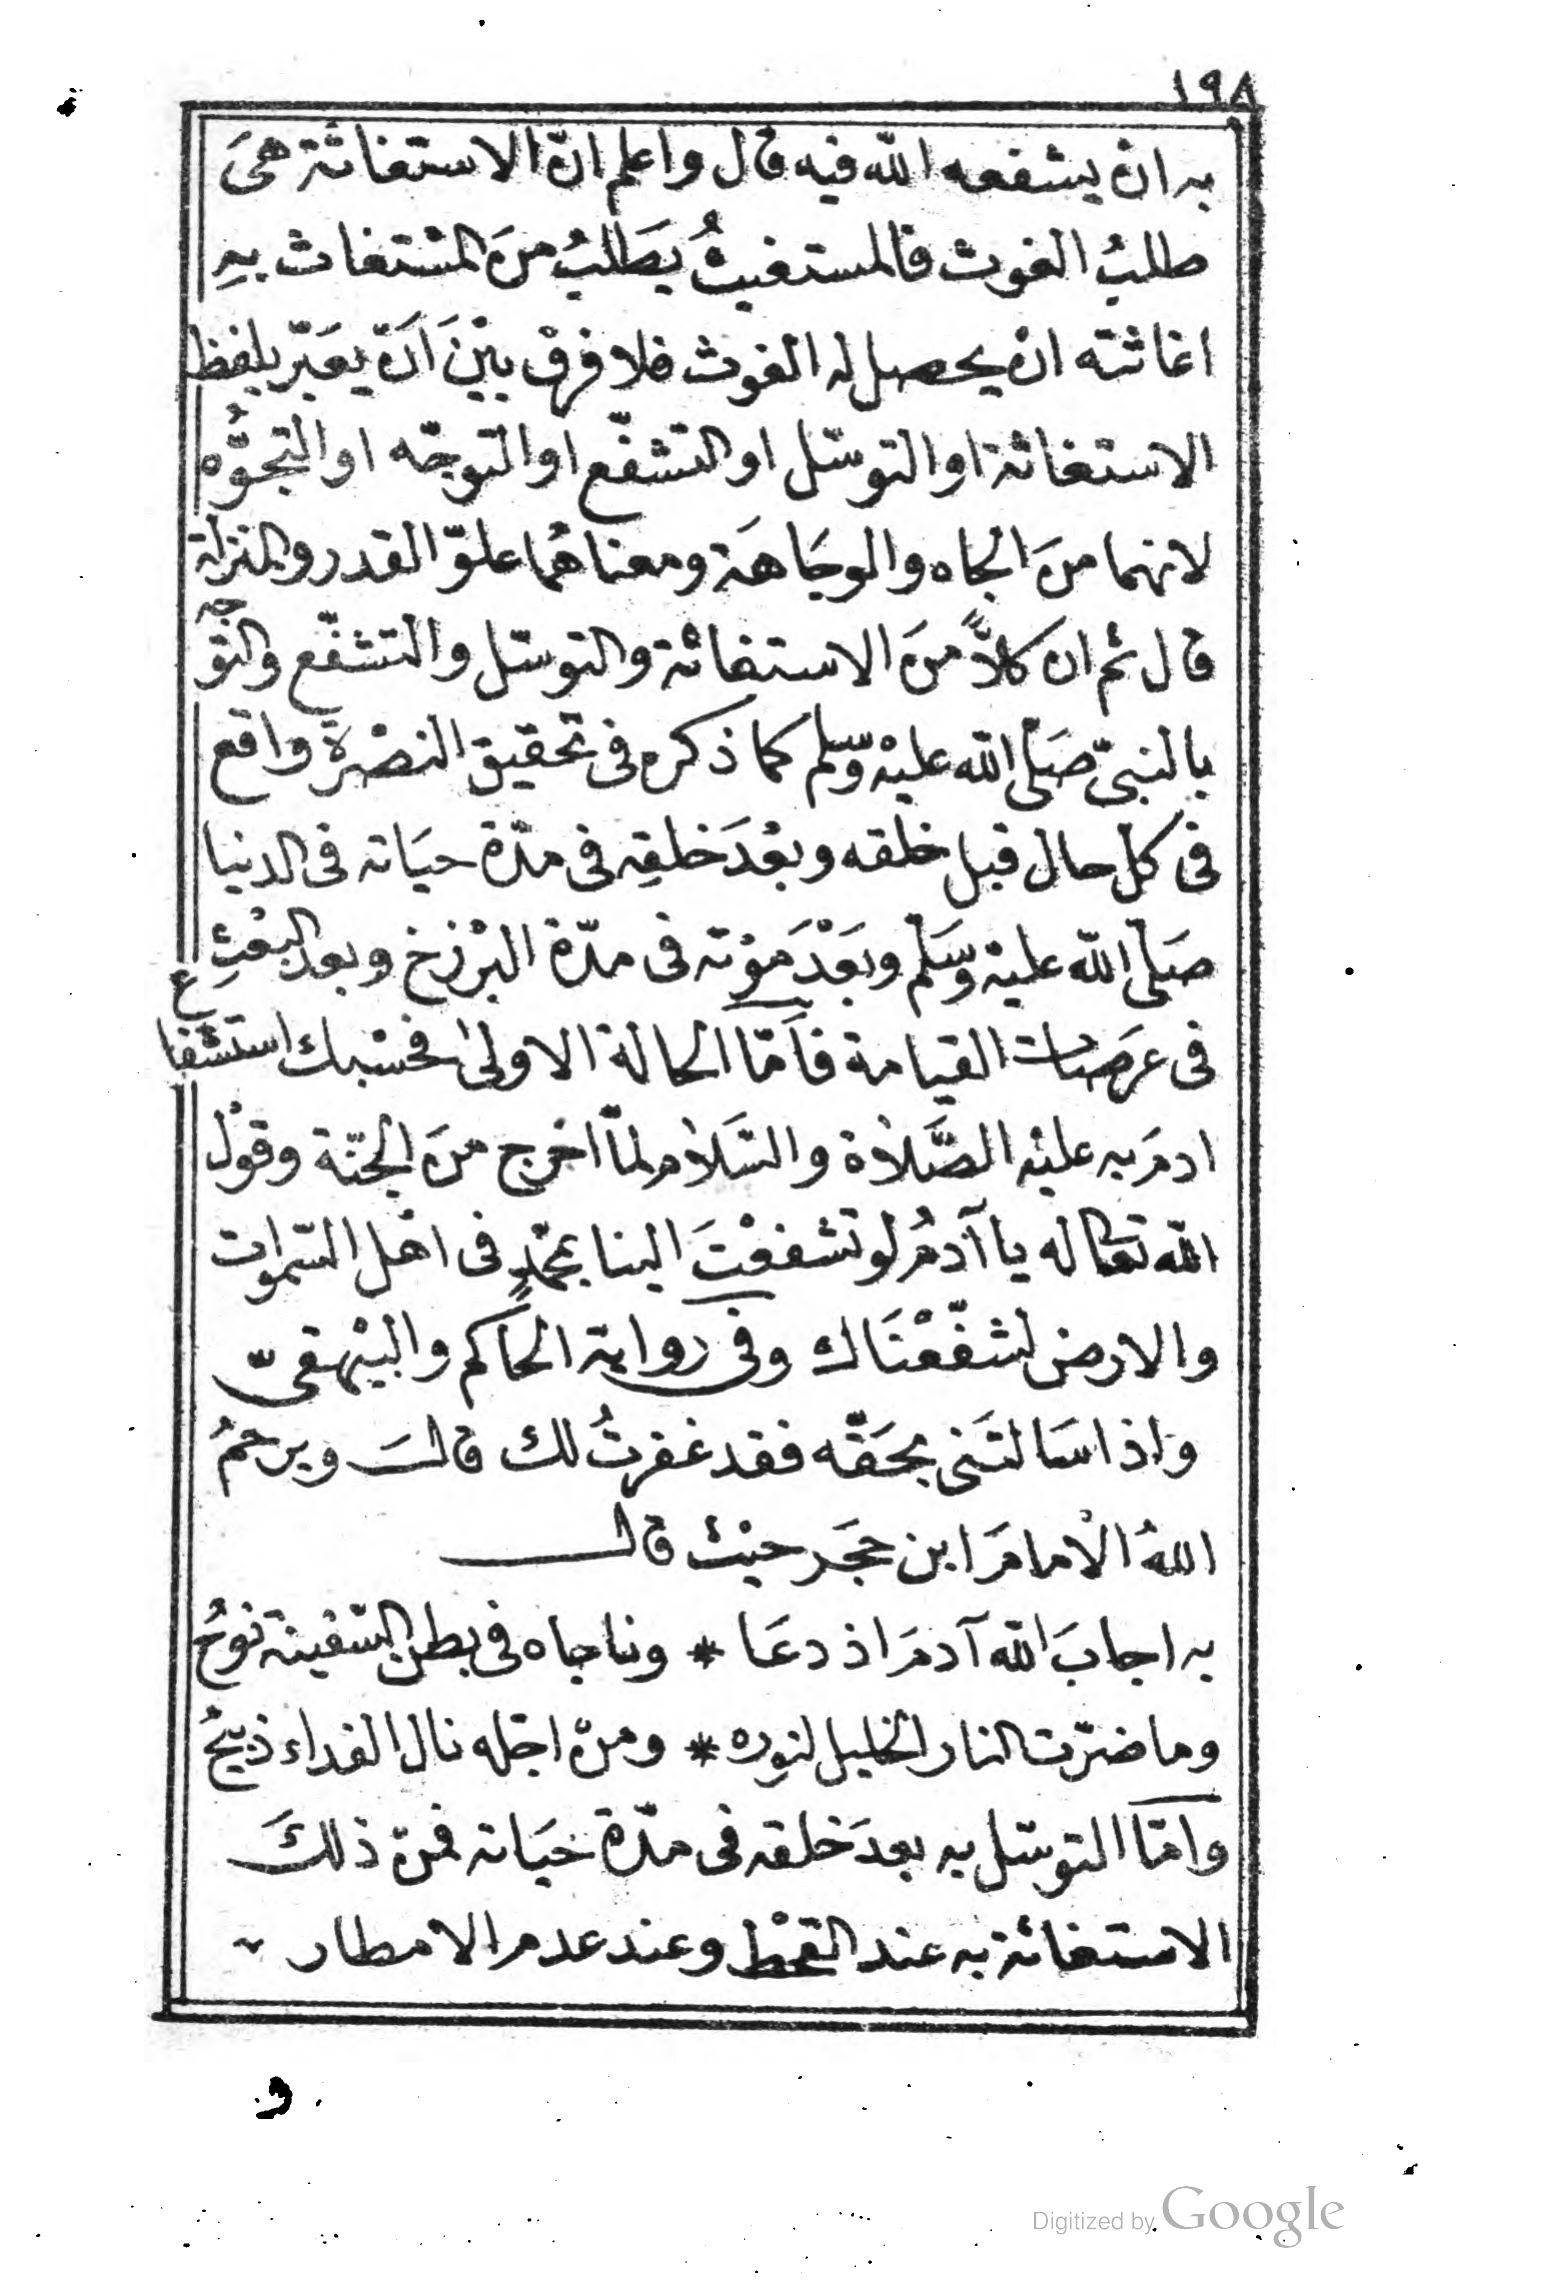 ١٩٨
به انْ يشفعه الله فيه قال واعلم انّ الاستغاثة هىَ
طلبُ الغوث فالمستغيثُ يَطَلبُ منَ المسْتغاث بهِ
اغاثته انْ يحصل له الغوث فلا فرقْ بيْنَ اَنّ يعَبّر بلفظ
الاستغاثة او التوسّل او التشفّع او التوجّه او التجوُّه
لانهما منَ الجاه والوجَاهَة ومعناهُما علوّ القدر والمنزلة
قال ثم ان كلاًّ منَ الاستغاثة والتوسّل والتشفّع والتوجّه
بالنبىّ صَلى الله عليْه وسّلم كما ذكره فى تحقيق النصْرة واقع
فى كل حال قبل خلقه وبعْدَ خلقِه فى مدّة حيَاته فى الدنيا
صَلى الله عليْه وَسَلم وبَعْدَ مَوْته فى مدّة البرْزخ وبعد البعْثِ
فى عرَصات القيامة فاَمّا الحالة الاولىٰ فحسْبك استشفاع
ادمَ به عليْه الصَّلاوٰة والسّلام لمّا اخرج منَ الجنّة وقوْل
الله تعَالى له يا آدمُ لو تشفعْتَ الينا بمحمّدٍ فى اهْل السّموات
والارض لشفّعْنَاك وفى رواية الحاكم والبيْهقىّ
واذا سَالتَنى بحَقّه فقد غفرتُ لك قالَ ويرحمُ
اللهُ الْامامَ ابن حَجَر حيْث قال
به اجابَ الله آدمَ اذ دعَا * وناجاه فى بطن السّفينة نوحُ
وما ضرّت النار الخليل لنوره * ومنْ اجْله نال الفداء ذبيْحُ
وامّا التوسّل به بعدَ خلقه فى مدّة حَيَاته فمنْ ذلكَ
الاستغاثة به عند القحْط وعند عدم الامطار
و
Digitized by Google